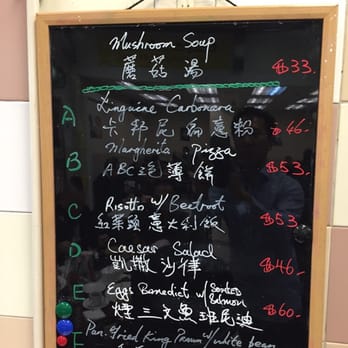 Mushroom Soup
蘑菇湯 $33.
A Linguine Carbonara
卡邦尼扁意粉 $46.
B Margherita Pizza
ABC 薄餅 $53.
C Risotto w/ Beetroot
紅菜頭意大利飯 $53.
D Caesar Salad
凱撒沙律 $46.
E Eggs Benedict w/ Smoked Salmon
煙三文魚班尼迪 $60.
F Pan-fried King Prawn w/ white bean